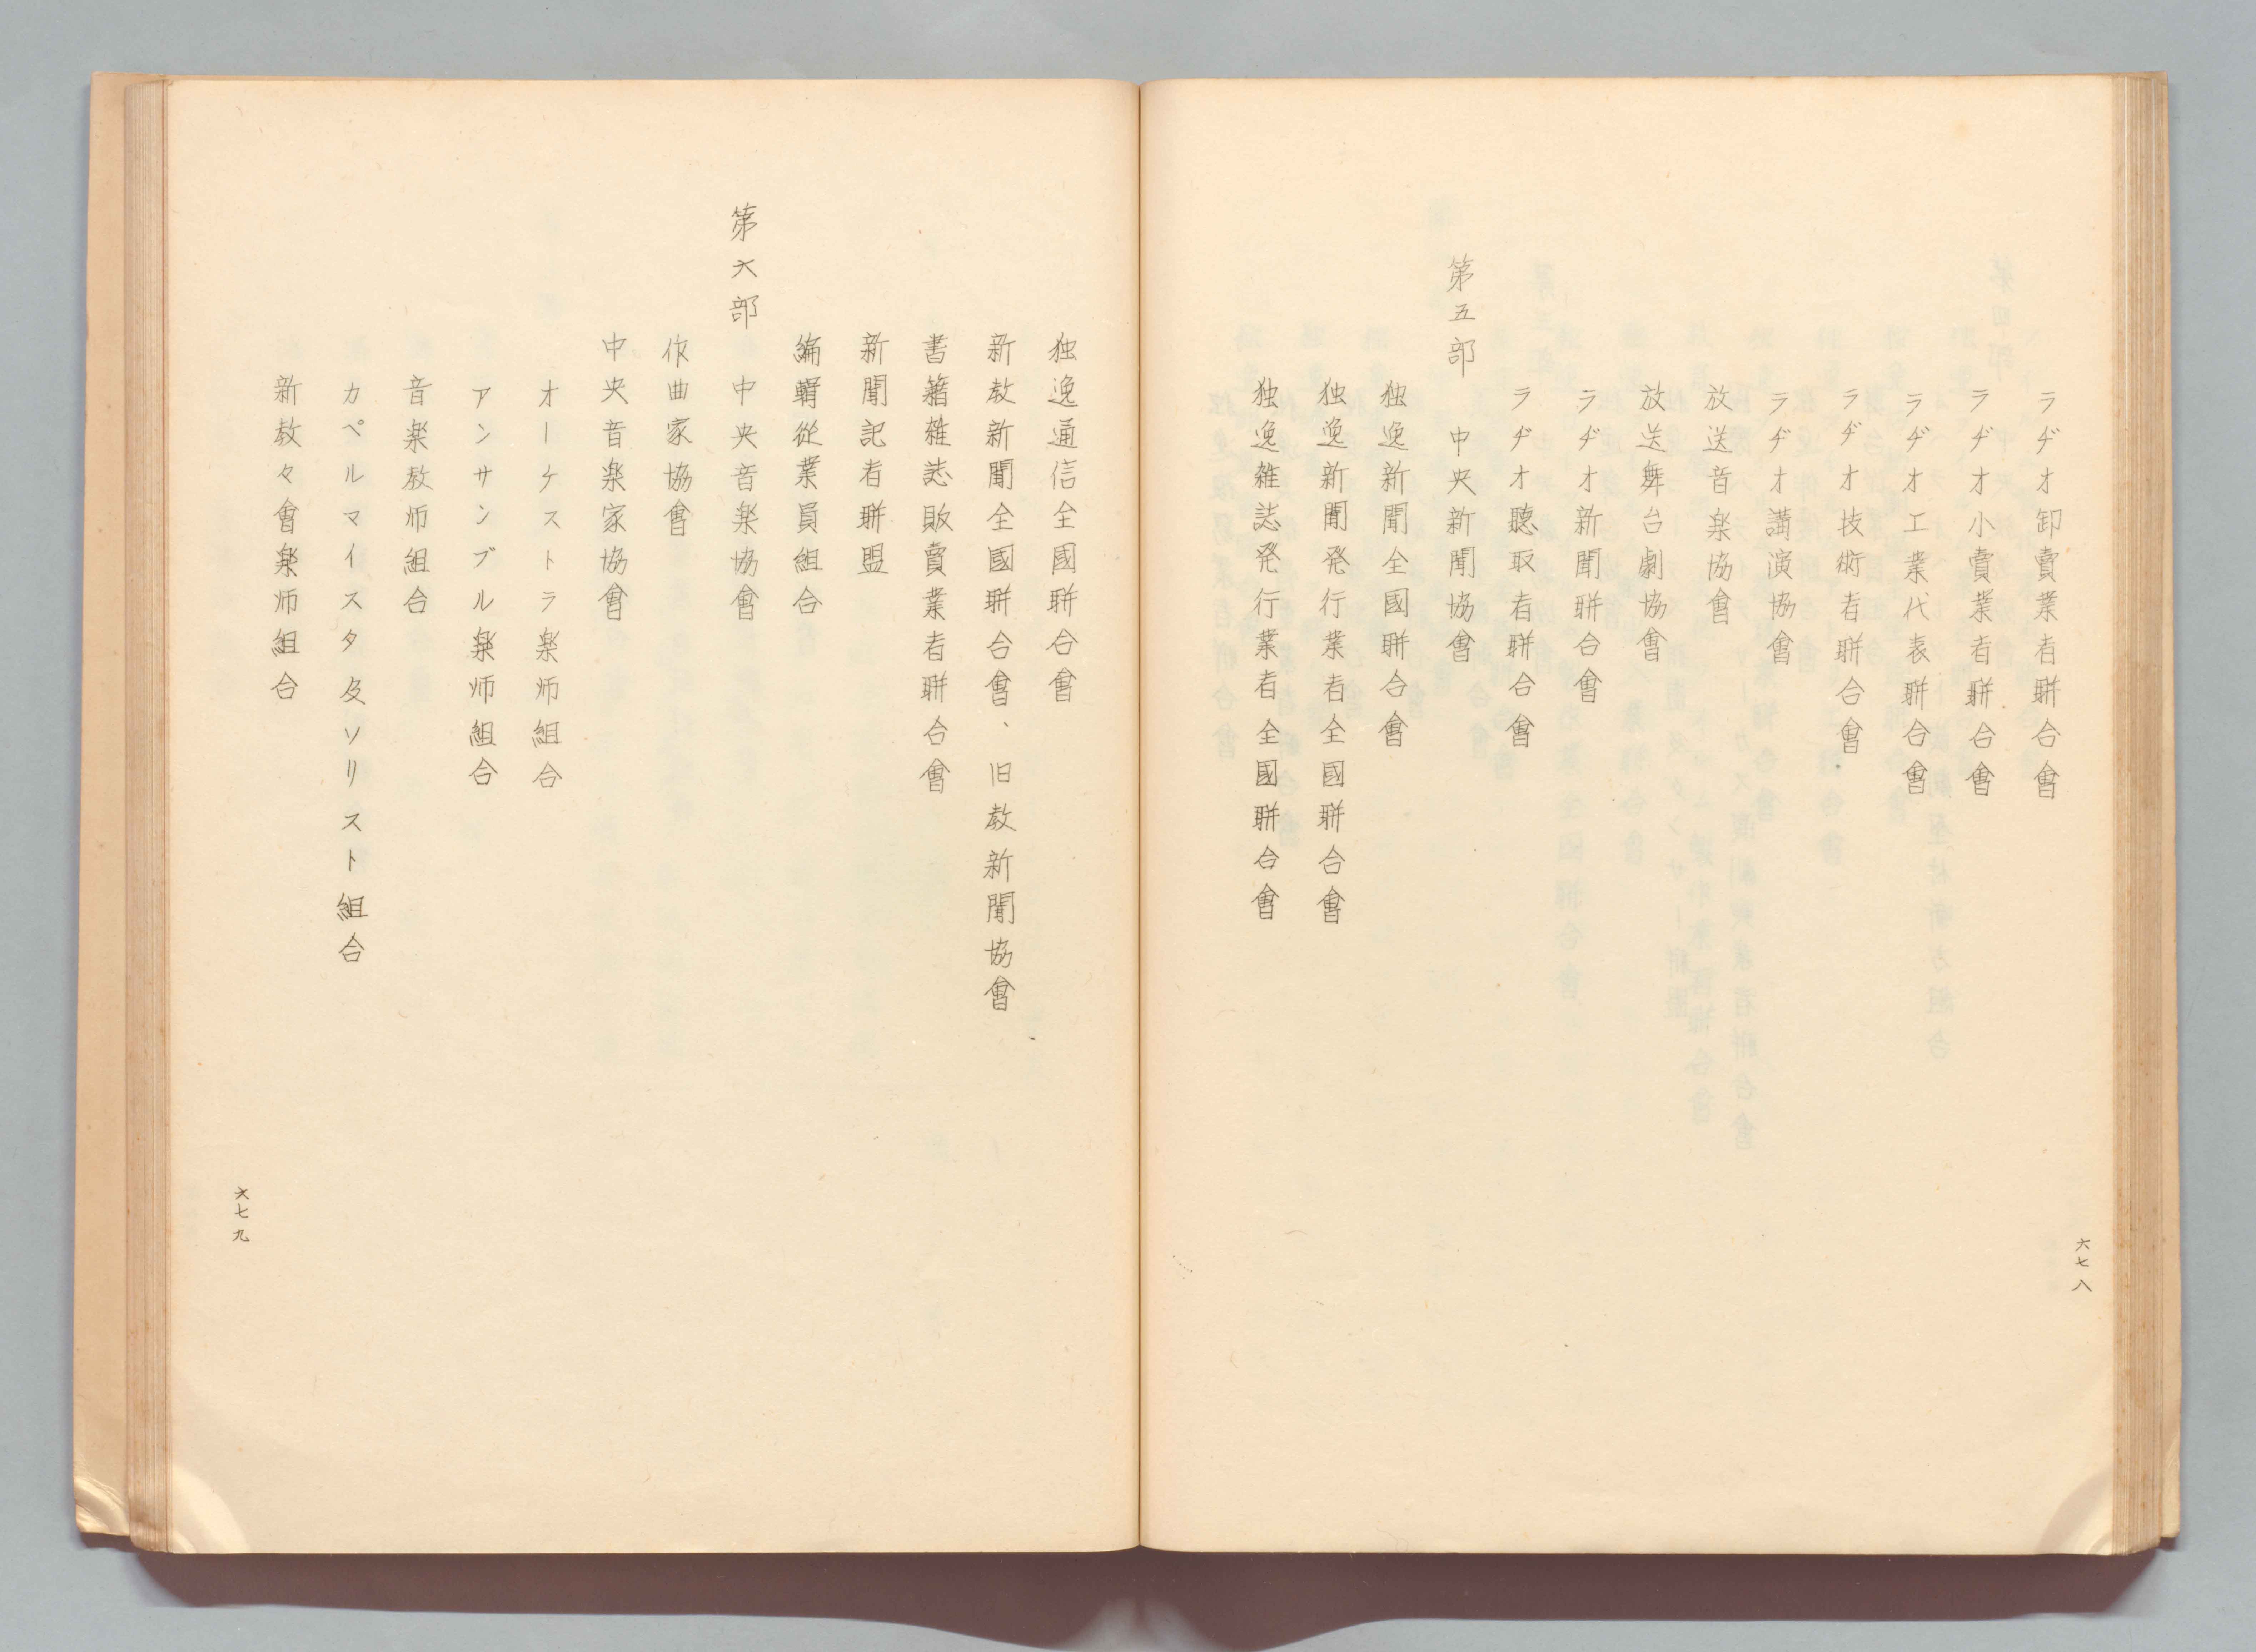 ラヂオ卸賣業者聨合會
ラヂオ小賣業者聨合會
ラヂオ工業代表聨合會
ラヂオ技術者聨合會
ラヂオ講演協會
放送音楽協會
放送舞台劇協會
ラヂオ新聞聨合會
ラヂオ聽取者聨合會
第五部　中央新聞協會
独逸新聞全國聨合會
独逸新聞発行業者全國聨合會
独逸雑誌発行業者全國聨合會
六七八
独逸通信全國聨合會
新教新聞全國聨合會、旧教新聞協會
書籍雑誌販賣業者聨合會
新聞記者聨盟
編輯従業員組合
第六部　中央音楽協會
作曲家協會
中央音楽家協會
オーケストラ楽师組合
アンサンブル楽师組合
音楽教师組合
カペルマイスタ及ソリスト組合
新教々會楽师組合
六七九